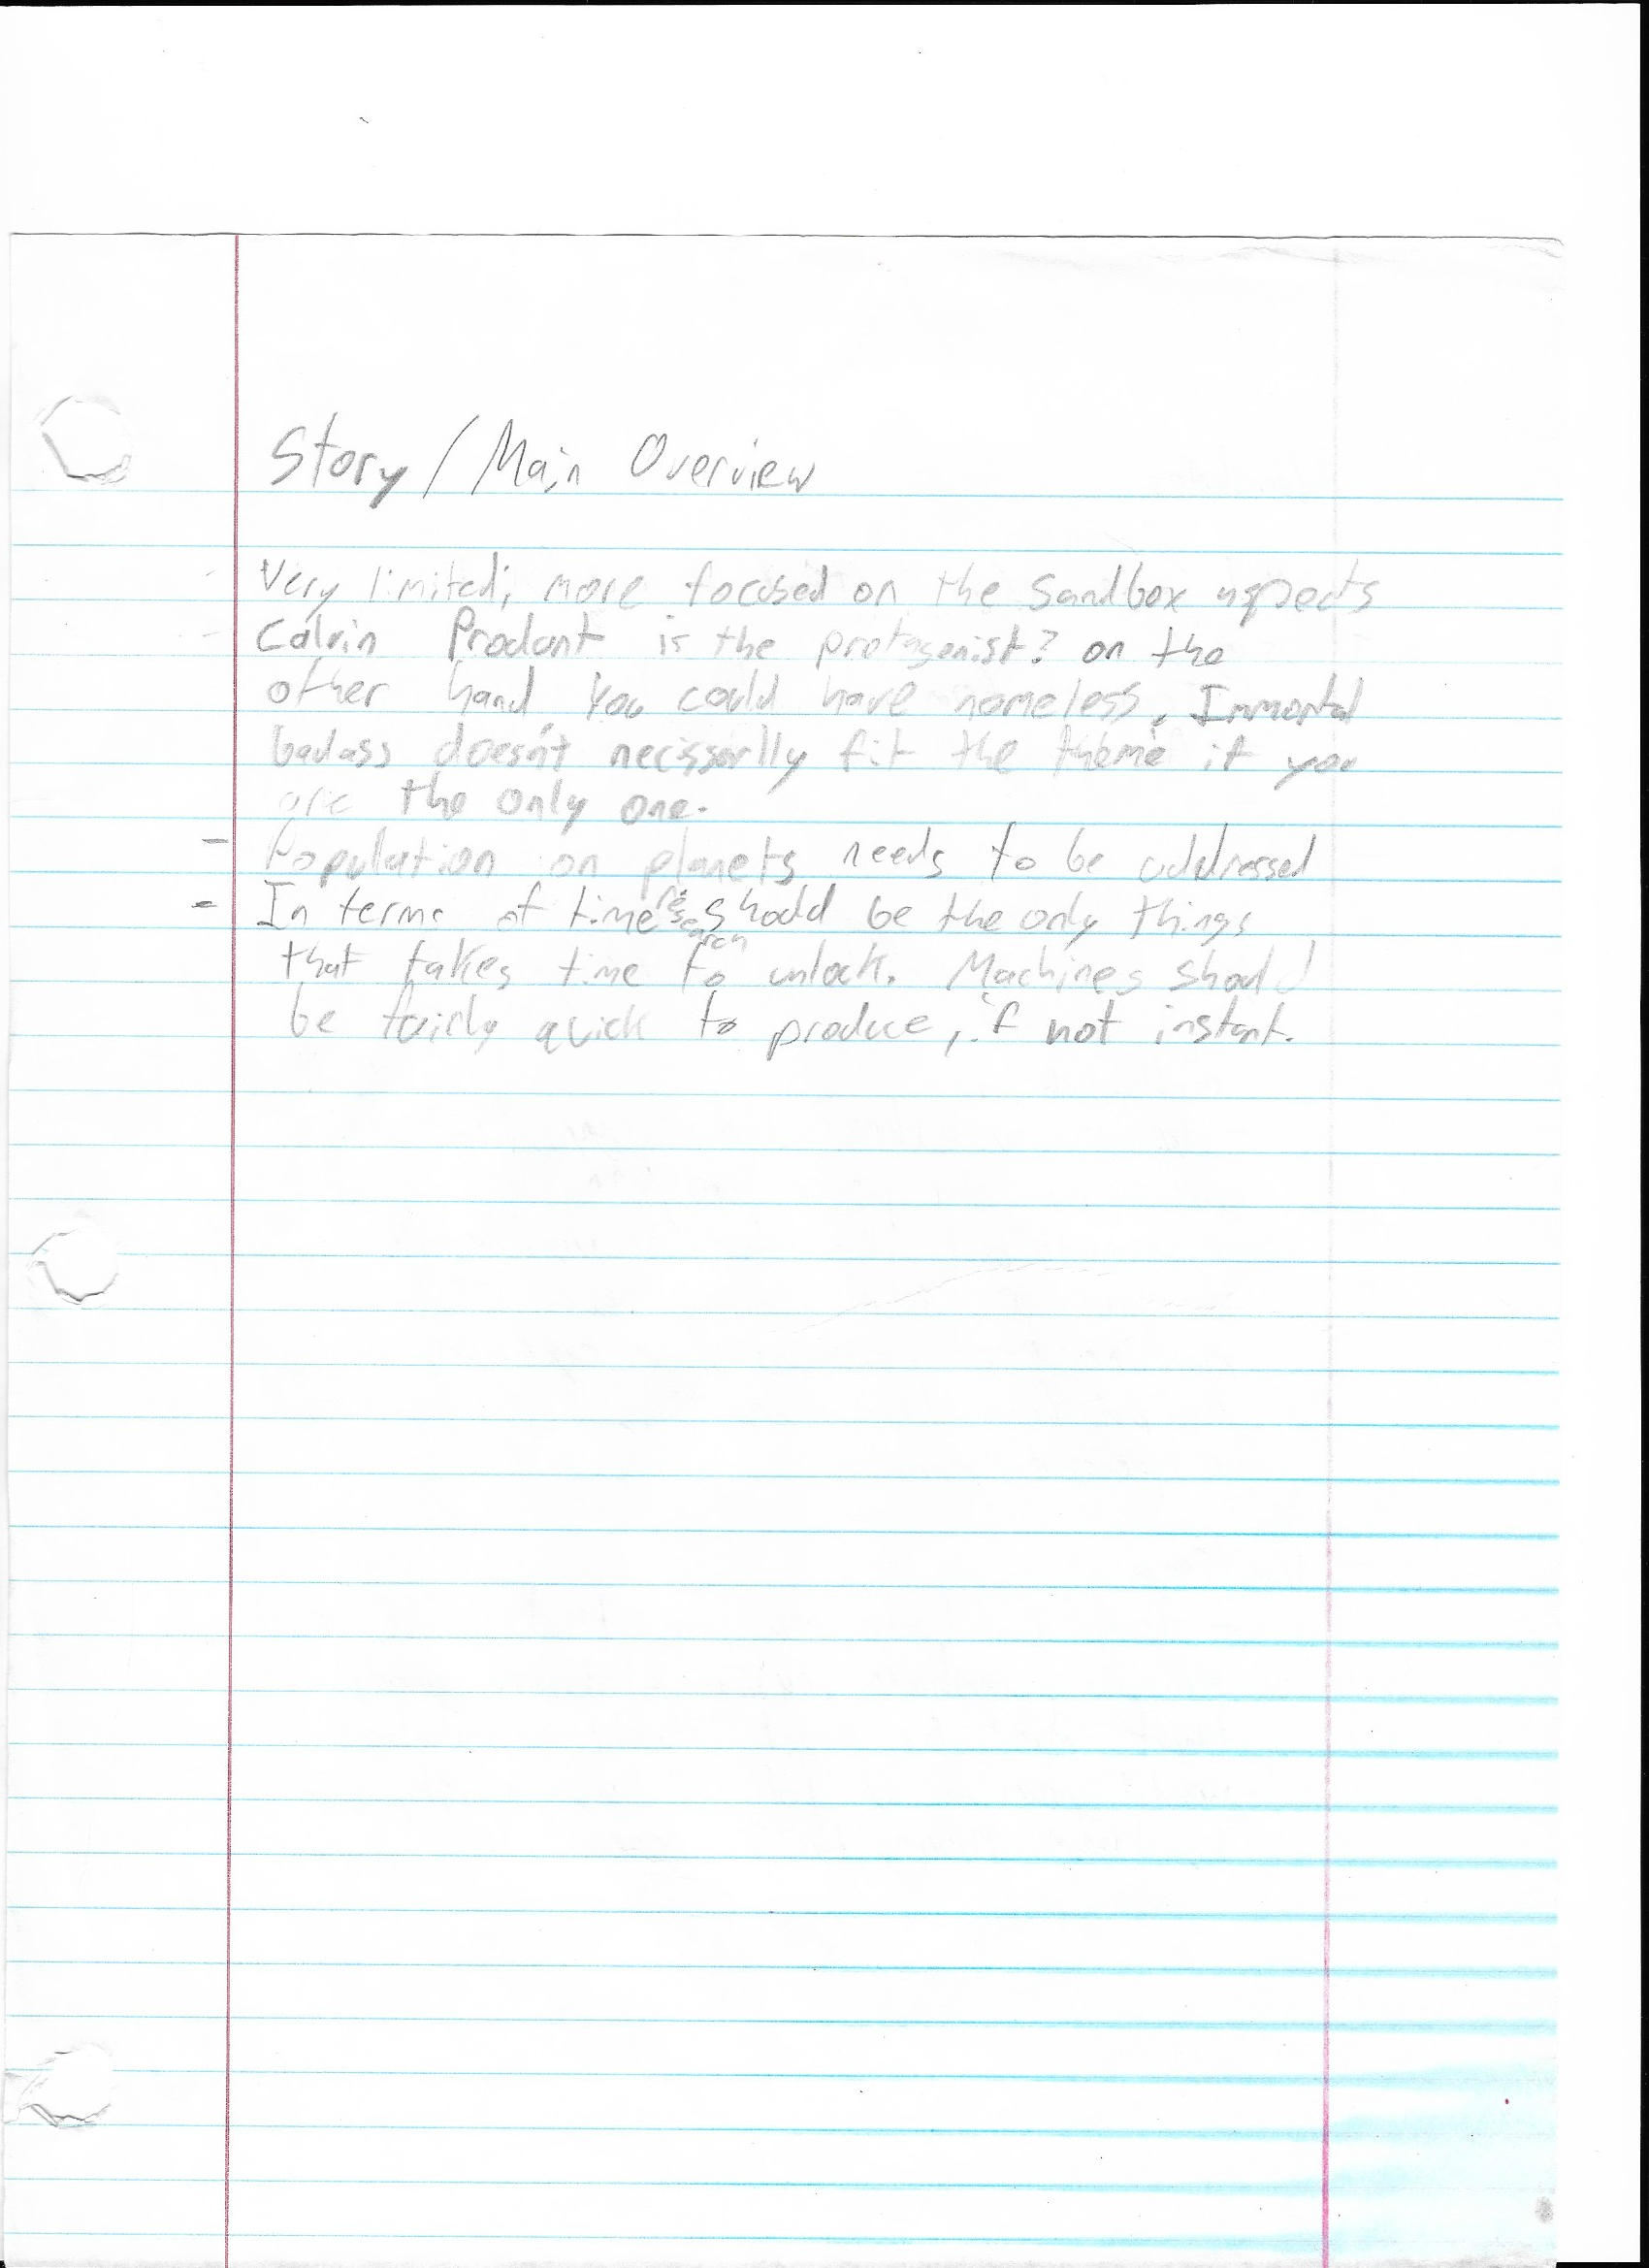 Story / Main Overview
- Very limited; more focused on the sandbox aspects
- Calvin Prodont is the protagenist? on the
other hand you could have nameless. Immortal
badass doesn't necissarlly fit the theme if you
are the only one.
- Population on planets needs to be addressed
- In terms of time research should be the only things
that takes time to unlock. Machines should
be fairly quick to produce, if not instant.